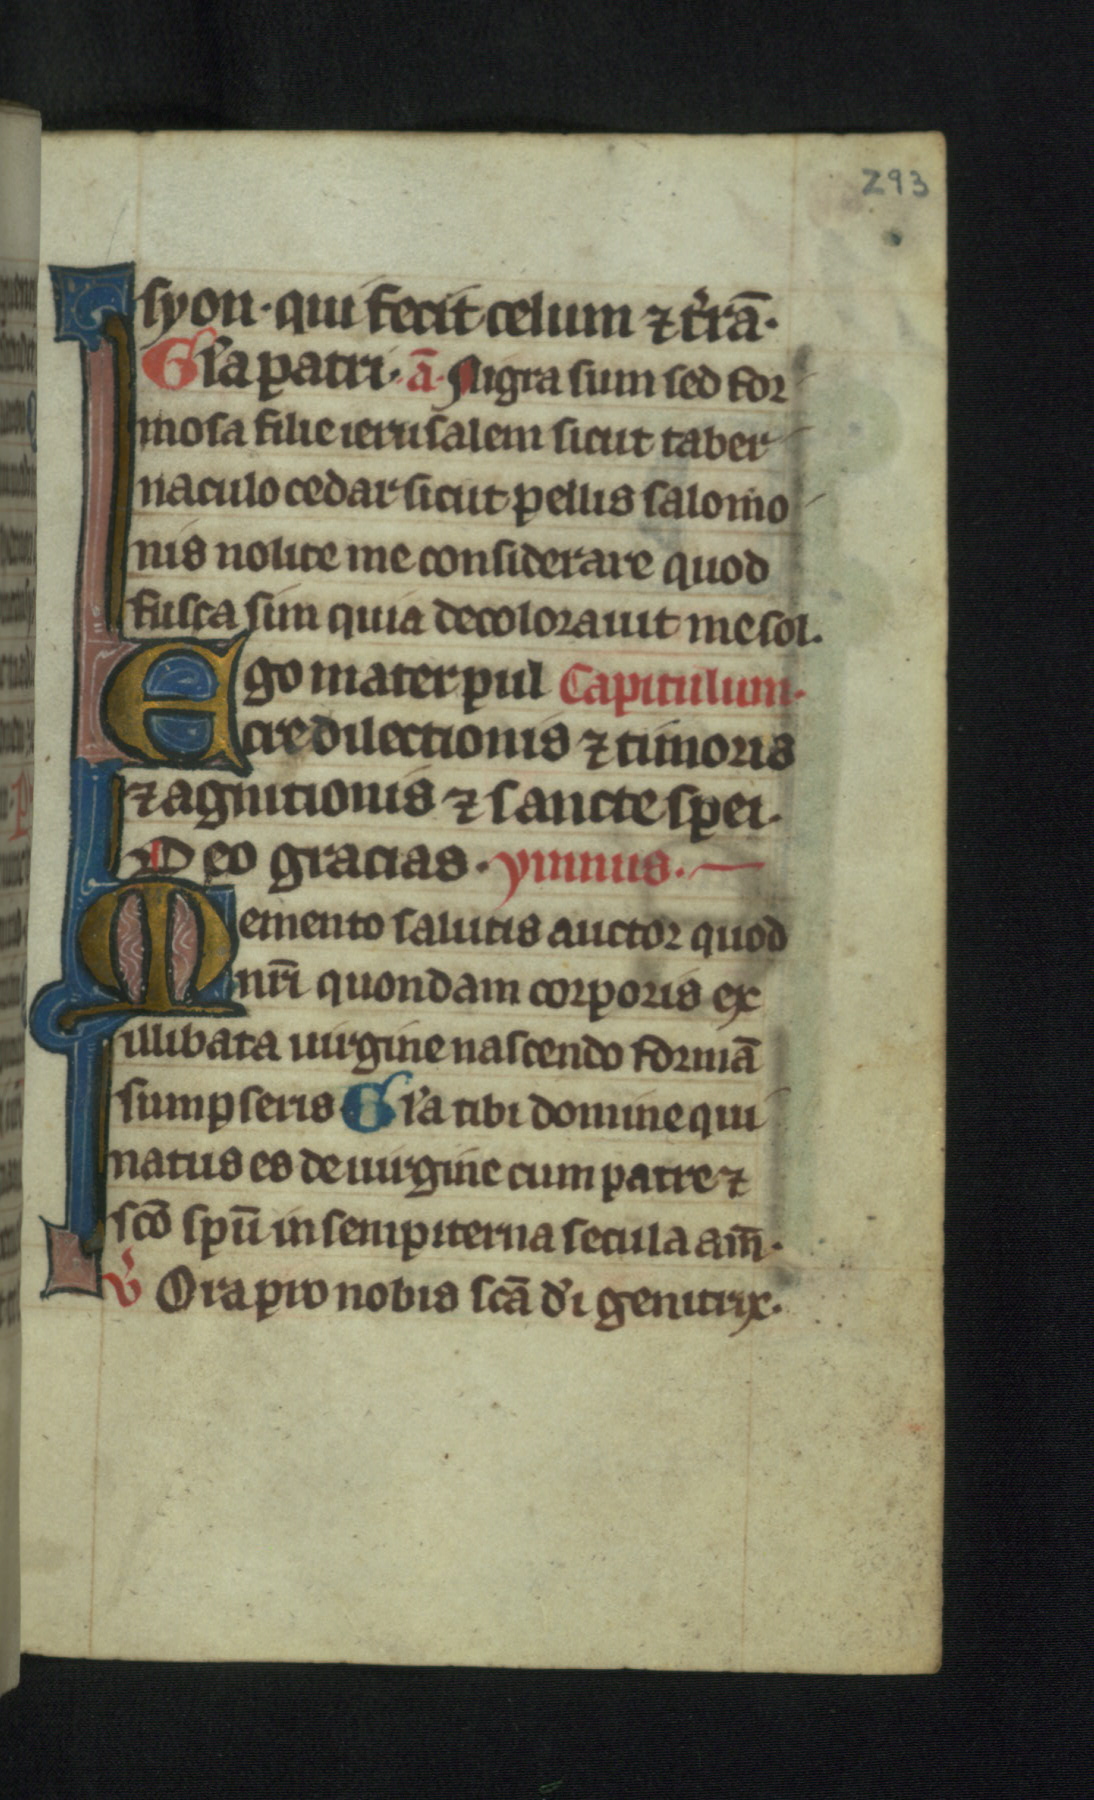 293
syon · qui fecit celum ⁊ t̾rā ·
Gl̾a patri · ā · Nigra sum sed for
mosa filie ierusalem sicut taber
naculo cedar sicut pellis salomo
nis nolite me considerare quod
fusca sim quia decolorauit me sol .
Ego mater pul Capitulum ·
cre dilectionis ⁊ timoris
⁊ agnitionis ⁊ sancte spei .
Deo gracias · ymnus .
Memento salutis auctor quod
nr̄i quondam corporis ex
illibata uirgine nascendo formā
sumpseris Gl̾a tibi domine qui
natus es de uirgine cum patre ⁊
sc̄o sp̄u in sempiterna secula am̄ ·
v̾ Ora pro nobis sc̄a d̾i genitrix ·